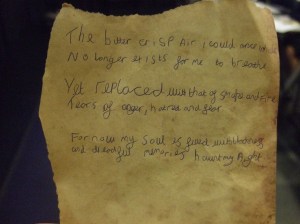 The bitter crisp Air i could once
No longer exists for me to breathe
Yet replaced with that of
Tears of anger, hatred and fear.
For now my soul is filled with
and dreadful memories haunt my